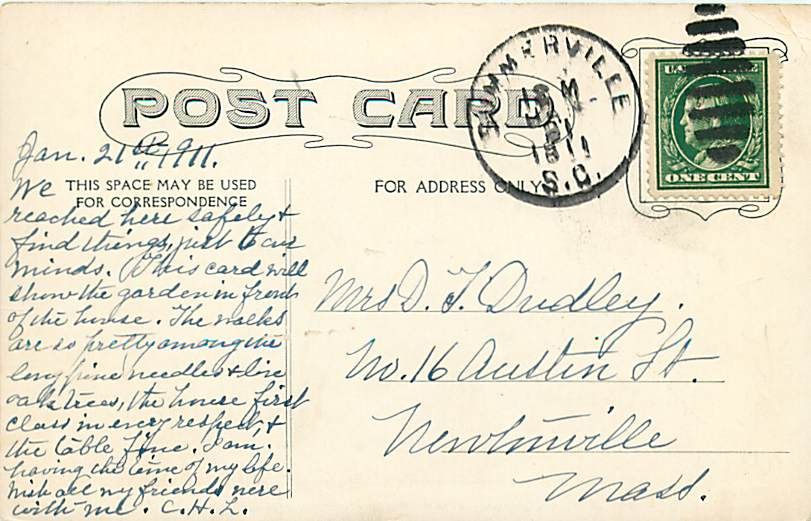 POST CARD
SUMMERVILLE
JAN
21
1911
S.C.
U.S. POSTAGE
ONE CENT
Jan. 21st 1911.
THIS SPACE MAY BE USED
FOR CORRESPONDENCE
FOR ADDRESS ONLY
We
reached here safely &
find things just to our
minds. This card will
show the garden in front
of the house. The walks
are so pretty among the
long pine needles & live
oak trees, the house first
class in every respect, &
the table fine. I am
having the time of my life.
Wish all my friends were
with me. C.H.L.
Mrs D. T. Dudley.
No. 16 Austin St.
Newtonville
Mass.